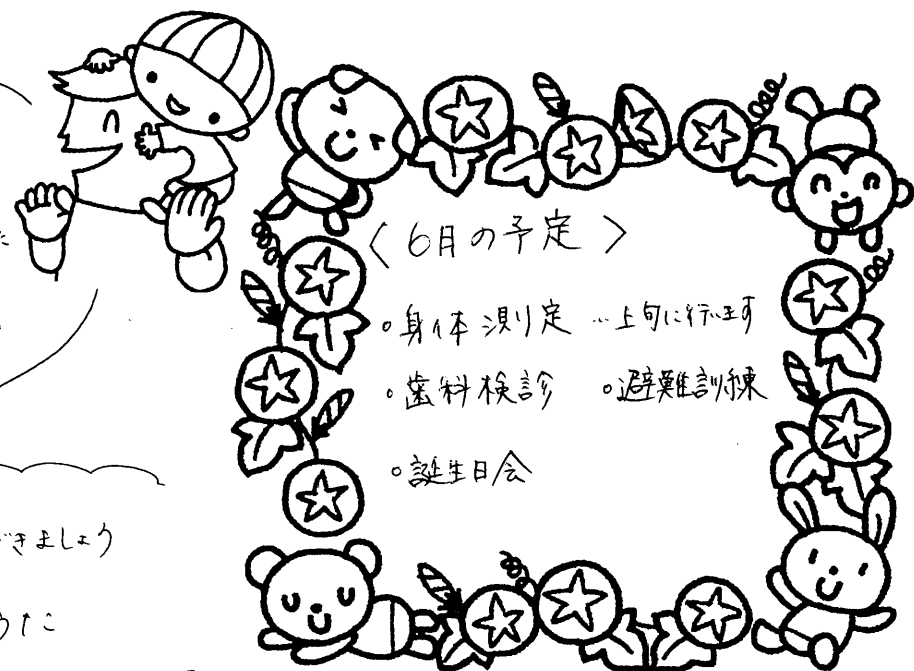 〈 6月の予定 〉
。身体測定 … 上旬に行います
。歯科検診 。避難訓練
。誕生日会
きましょう
うた